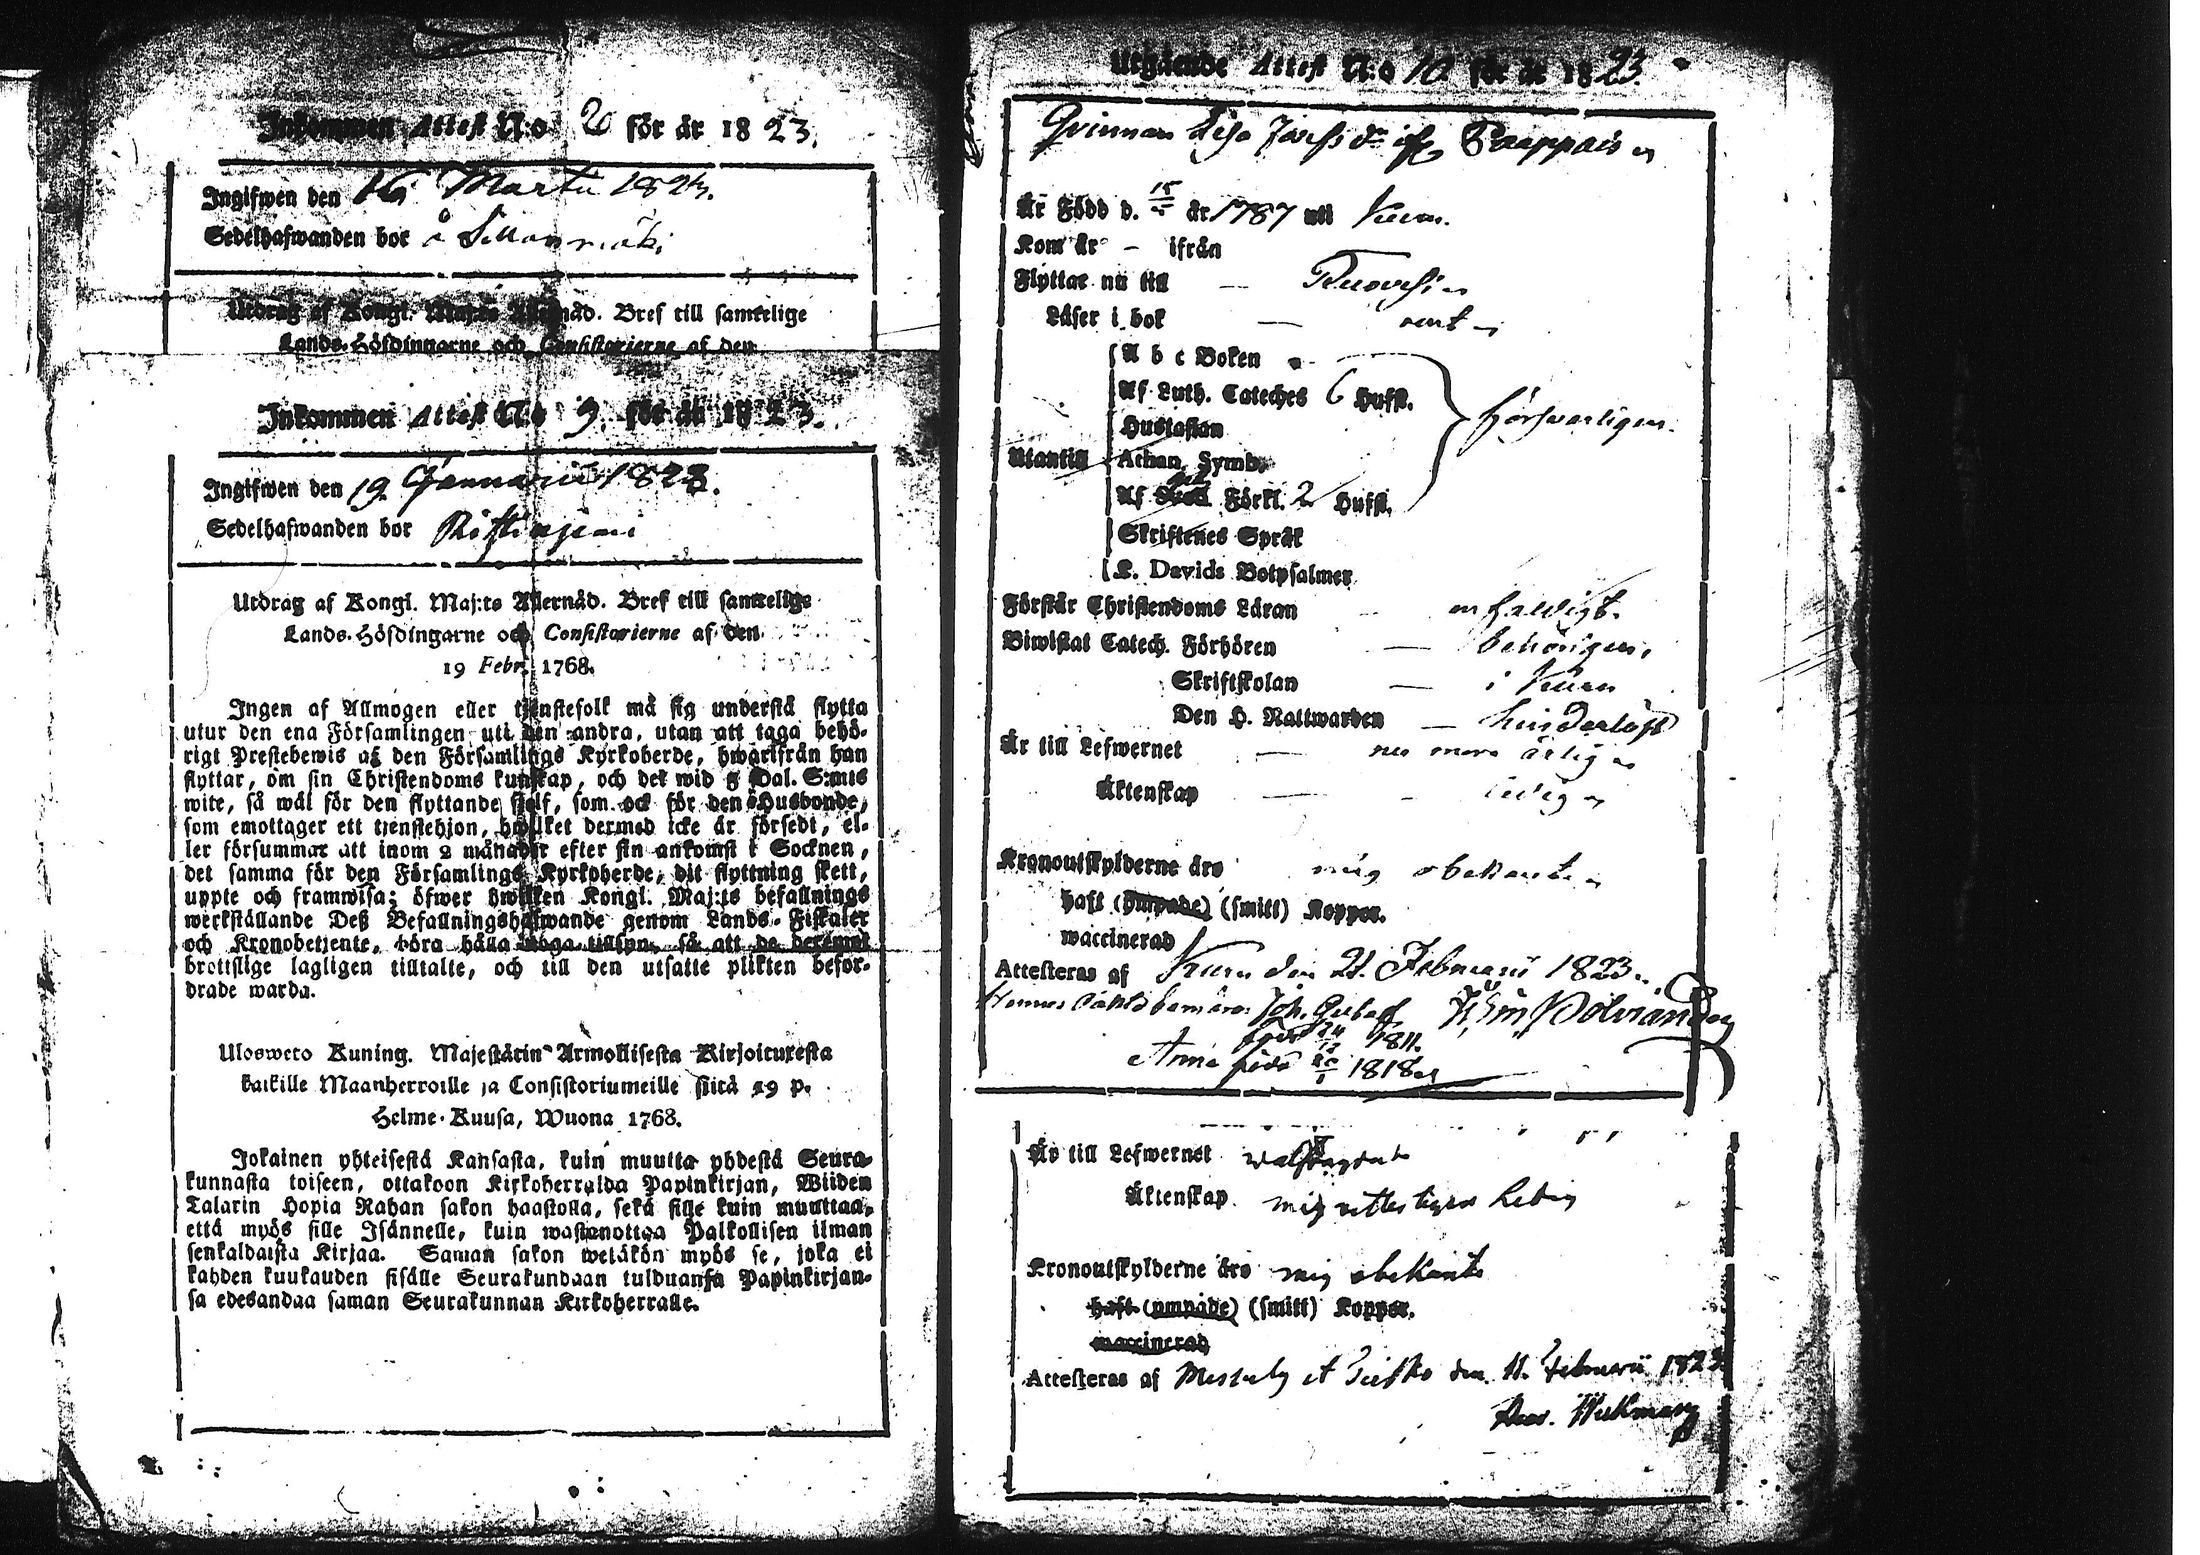 Inkommen Attest N:o 20 för år 1823.
Ingifwen den 16 Martii 1823.
Sedelhafwanden bor å
Utdrag af Kongl. Maj:ts Allernåd. Bref till samtelige
Lands-Höfdingarne och Consistorierne af den
Inkommen Attest N:o 9. för år 1823.
Ingifwen den 19. Januarii 1823.
Sedelhafwanden bor
Utdrag af Kongl. Maj:ts Allernåd. Bref till samtelige
Lands-Höfdingarne och Consistorierne af den
19 Febr. 1768.
Ingen af Allmogen eller tjenstefolk må sig understå flytta
utur den ena Församlingen uti den andra, utan att taga behö-
rigt Prestebewis af den Församlings Kyrkoherde, hwarifrån han
flyttar, om sin Christendoms kunskap, och det wid 5 Dal. S:mts
wite, så wäl för den flyttande sjelf, som ock för den Husbonde,
som emottager ett tjenstehjon, hwilket dermed icke är försedt, el-
ler försummar att inom 2 månader efter sin ankomst i Socknen,
det samma för den Församlings Kyrkoherde, dit flyttning skett,
uppte och framwisa; öfwer hwilken Kongl. Maj:ts befallnings
werkställande Deß Befallningshafwande genom Lands-Fiskaler
och Kronobetjente, böra hålla noga tillsyn, så att de deremot
brottslige lagligen tilltalte, och till den utsatte plikten befor-
drade warda.
Ulosweto Kuning. Majestätin Armollisesta Kirjoituxesta
kaikille Maanherroille ja Consistoriumeille siitä 19 p.
Helme-Kuusa, Wuona 1768.
Jokainen yhteisestä Kansasta, kuin muutta yhdestä Seura-
kunnasta toiseen, ottakoon Kirkoherralda Papinkirjan, Wiiden
Talarin Hopia Rahan sakon haastolla, sekä sille kuin muuttaa,
että myös sille Isännelle, kuin wastanottaa Palkollisen ilman
senkaldaista Kirjaa. Saman sakon wetäkön myös se, joka ei
kahden kuukauden sisälle Seurakundaan tulduansa Papinkirjan-
sa edesandaa saman Seurakunnan Kirkoherralle.
Utgående Attest N:o 10 för år 1823.
Qvinnan Lisa Josefs dr
Är Född d. 15/5 år 1787 uti Kuru.
Kom år – ifrån
Flyttar nu till — Ruovesi
Läser i bok — rent
Utantill
A b c Boken
Af Luth. Cateches 6 Hufst.
Hustaflan
Athan. Symb.
Af Förkl. 2 Hufst.
Skriftenes Språk
K. Davids Botpsalmer
försvarligen.
Förstår Christendoms Läran – enfaldigt.
Biwistat Catech. Förhören — behörigen.
Skriftskolan — i Kuru
Den H. Nattwarden — hinderlöst
Är till Lefwernet — nu mera ärlig
Äktenskap — ledig
Kronoutskylderne äro mig obekante
haft (ympade) (smitt) Koppor.
waccinerad
Attesteras af Kuru den 21. Februarii 1823.
Hennes oäkta barn äro: Joh. Gustaf Polviander
född 24/12 1811.
Anna född 20/1 1818
Är till Lefwernet
Äktenskap mig ledig
Kronoutskylderne äro mig obekante
haft (ympade) (smitt) Koppor.
waccinerad
Attesteras af Messuby den 11. Februarii 1823